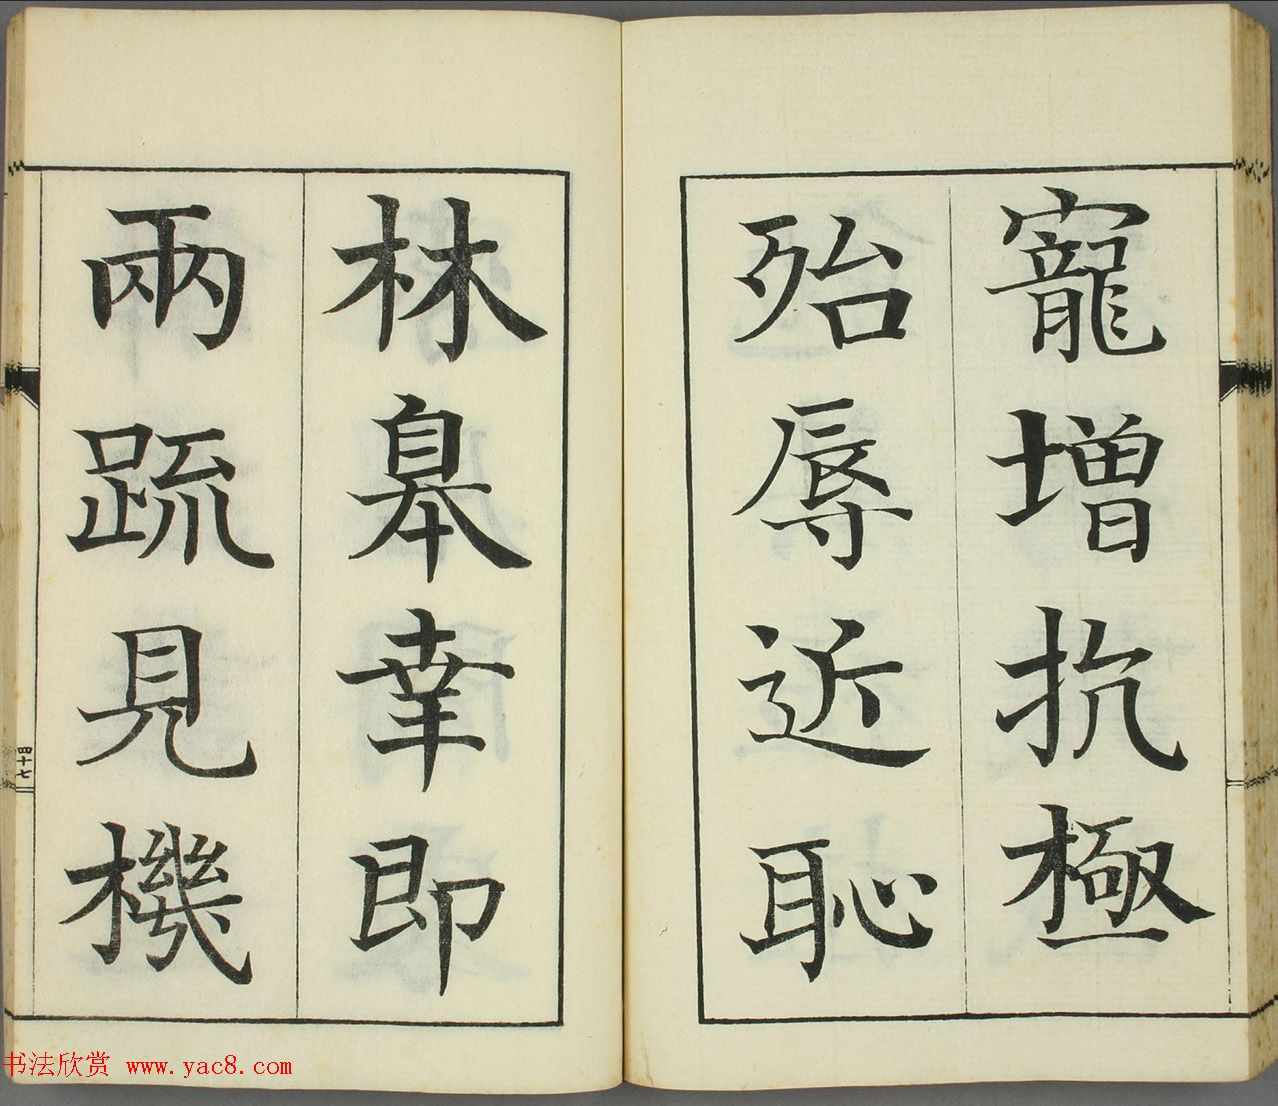 寵增抗極
殆辱近恥
林皋幸即
兩疏見機
四十七
书法欣赏 www.yac8.com